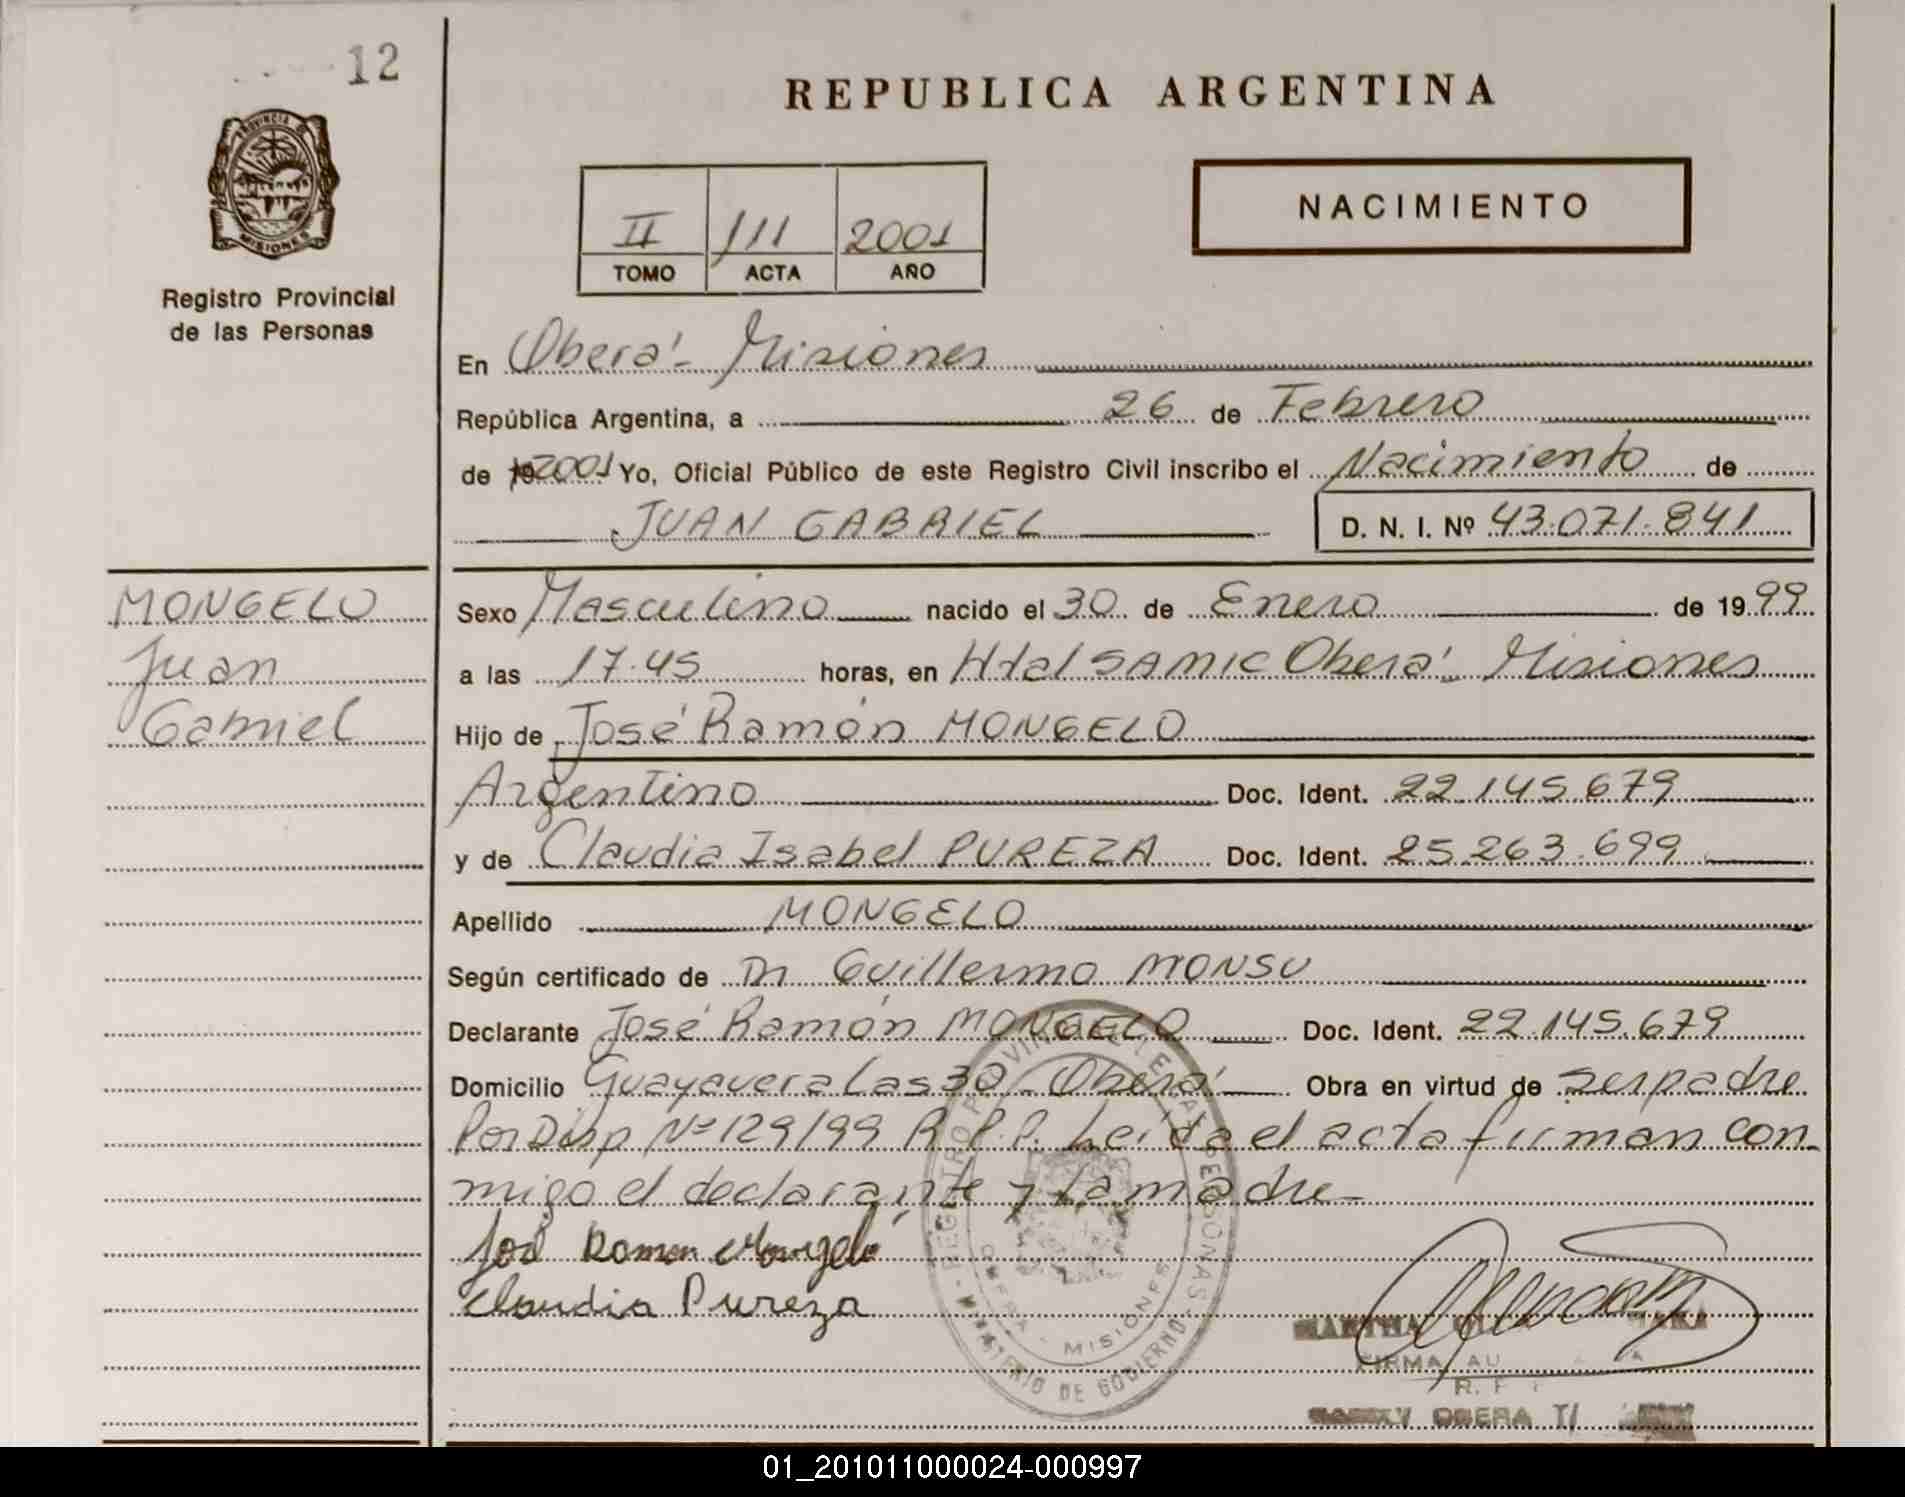 12
REPUBLICA ARGENTINA
PROVINCIA DE
MISIONES
Registro Provincial
de las Personas
II 111 2001
TOMO ACTA AÑO
NACIMIENTO
En Oberá - Misiones
República Argentina, a 26 de Febrero
de 19 2001 Yo, Oficial Público de este Registro Civil inscribo el Nacimiento de
JUAN GABRIEL D. N. I. Nº 43.071.841
MONGELO
Juan
Gabriel
Sexo Masculino nacido el 30 de Enero de 1999
a las 17.45 horas, en Htal SAMIC Oberá - Misiones
Hijo de José Ramón MONGELO
Argentino Doc. Ident. 22.145.679
y de Claudia Isabel PUREZA Doc. Ident. 25.263.699
Apellido MONGELO
Según certificado de Dr Guillermo MONSU
Declarante José Ramón MONGELO Doc. Ident. 22.145.679
Domicilio Guayavera Las 30 - Oberá Obra en virtud de ser padre
Por Disp Nº 129/99 R.P.P. Leída el acta firman con
migo el declarante y la madre -
José Ramon Mongelo
Claudia Pureza
REGISTRO PROVINCIAL DE LAS PERSONAS
MINISTERIO DE GOBIERNO
OBERA - MISIONES
MARTHA
FIRMA AU
R. P
OBERA
01_201011000024-000997